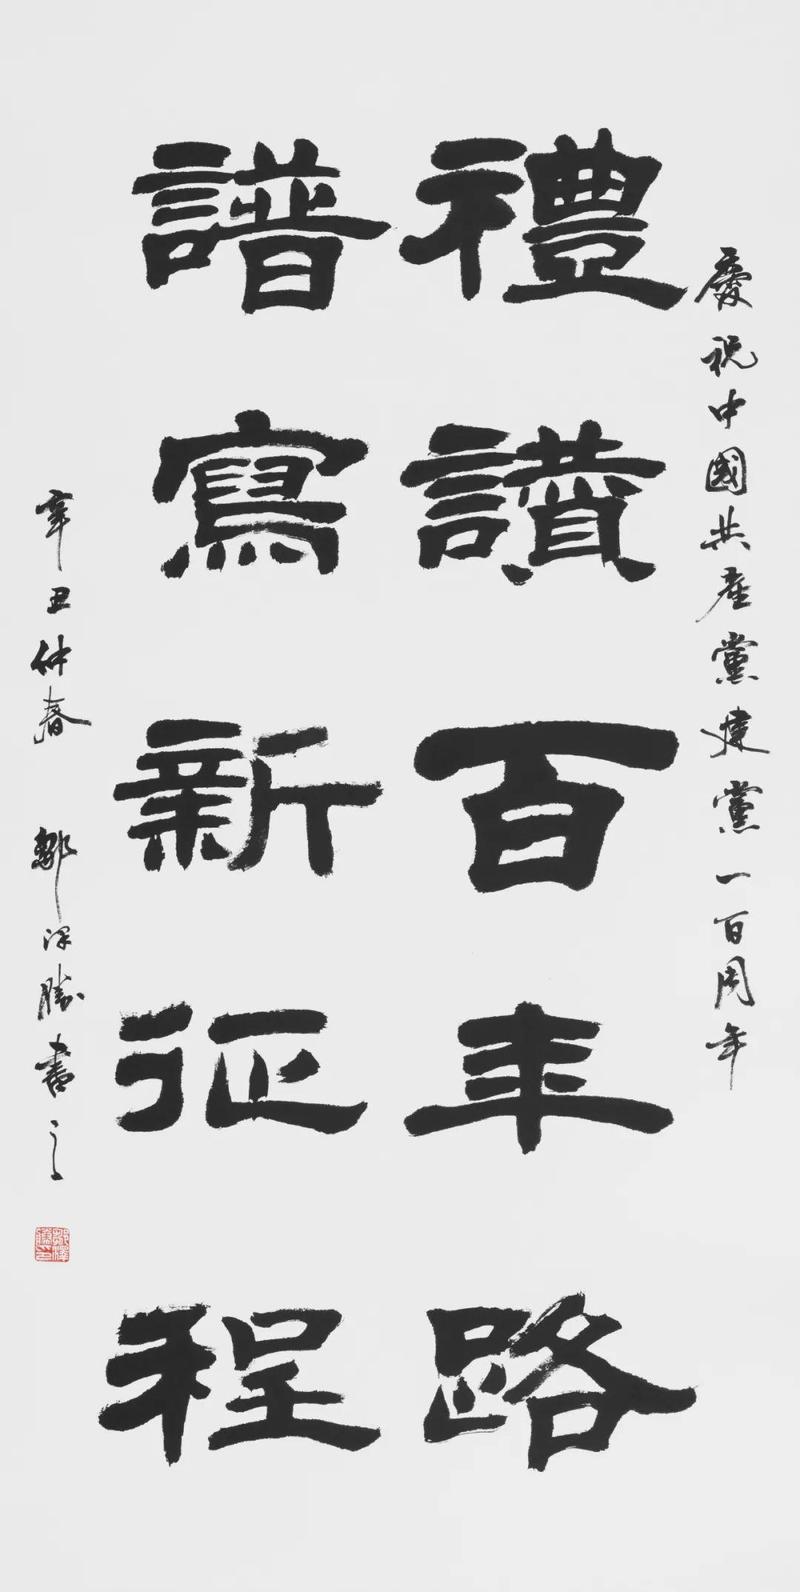 慶祝中國共產黨建黨一百周年
禮讃百年路
譜寫新征程
辛丑仲春 鄒澤勝書之